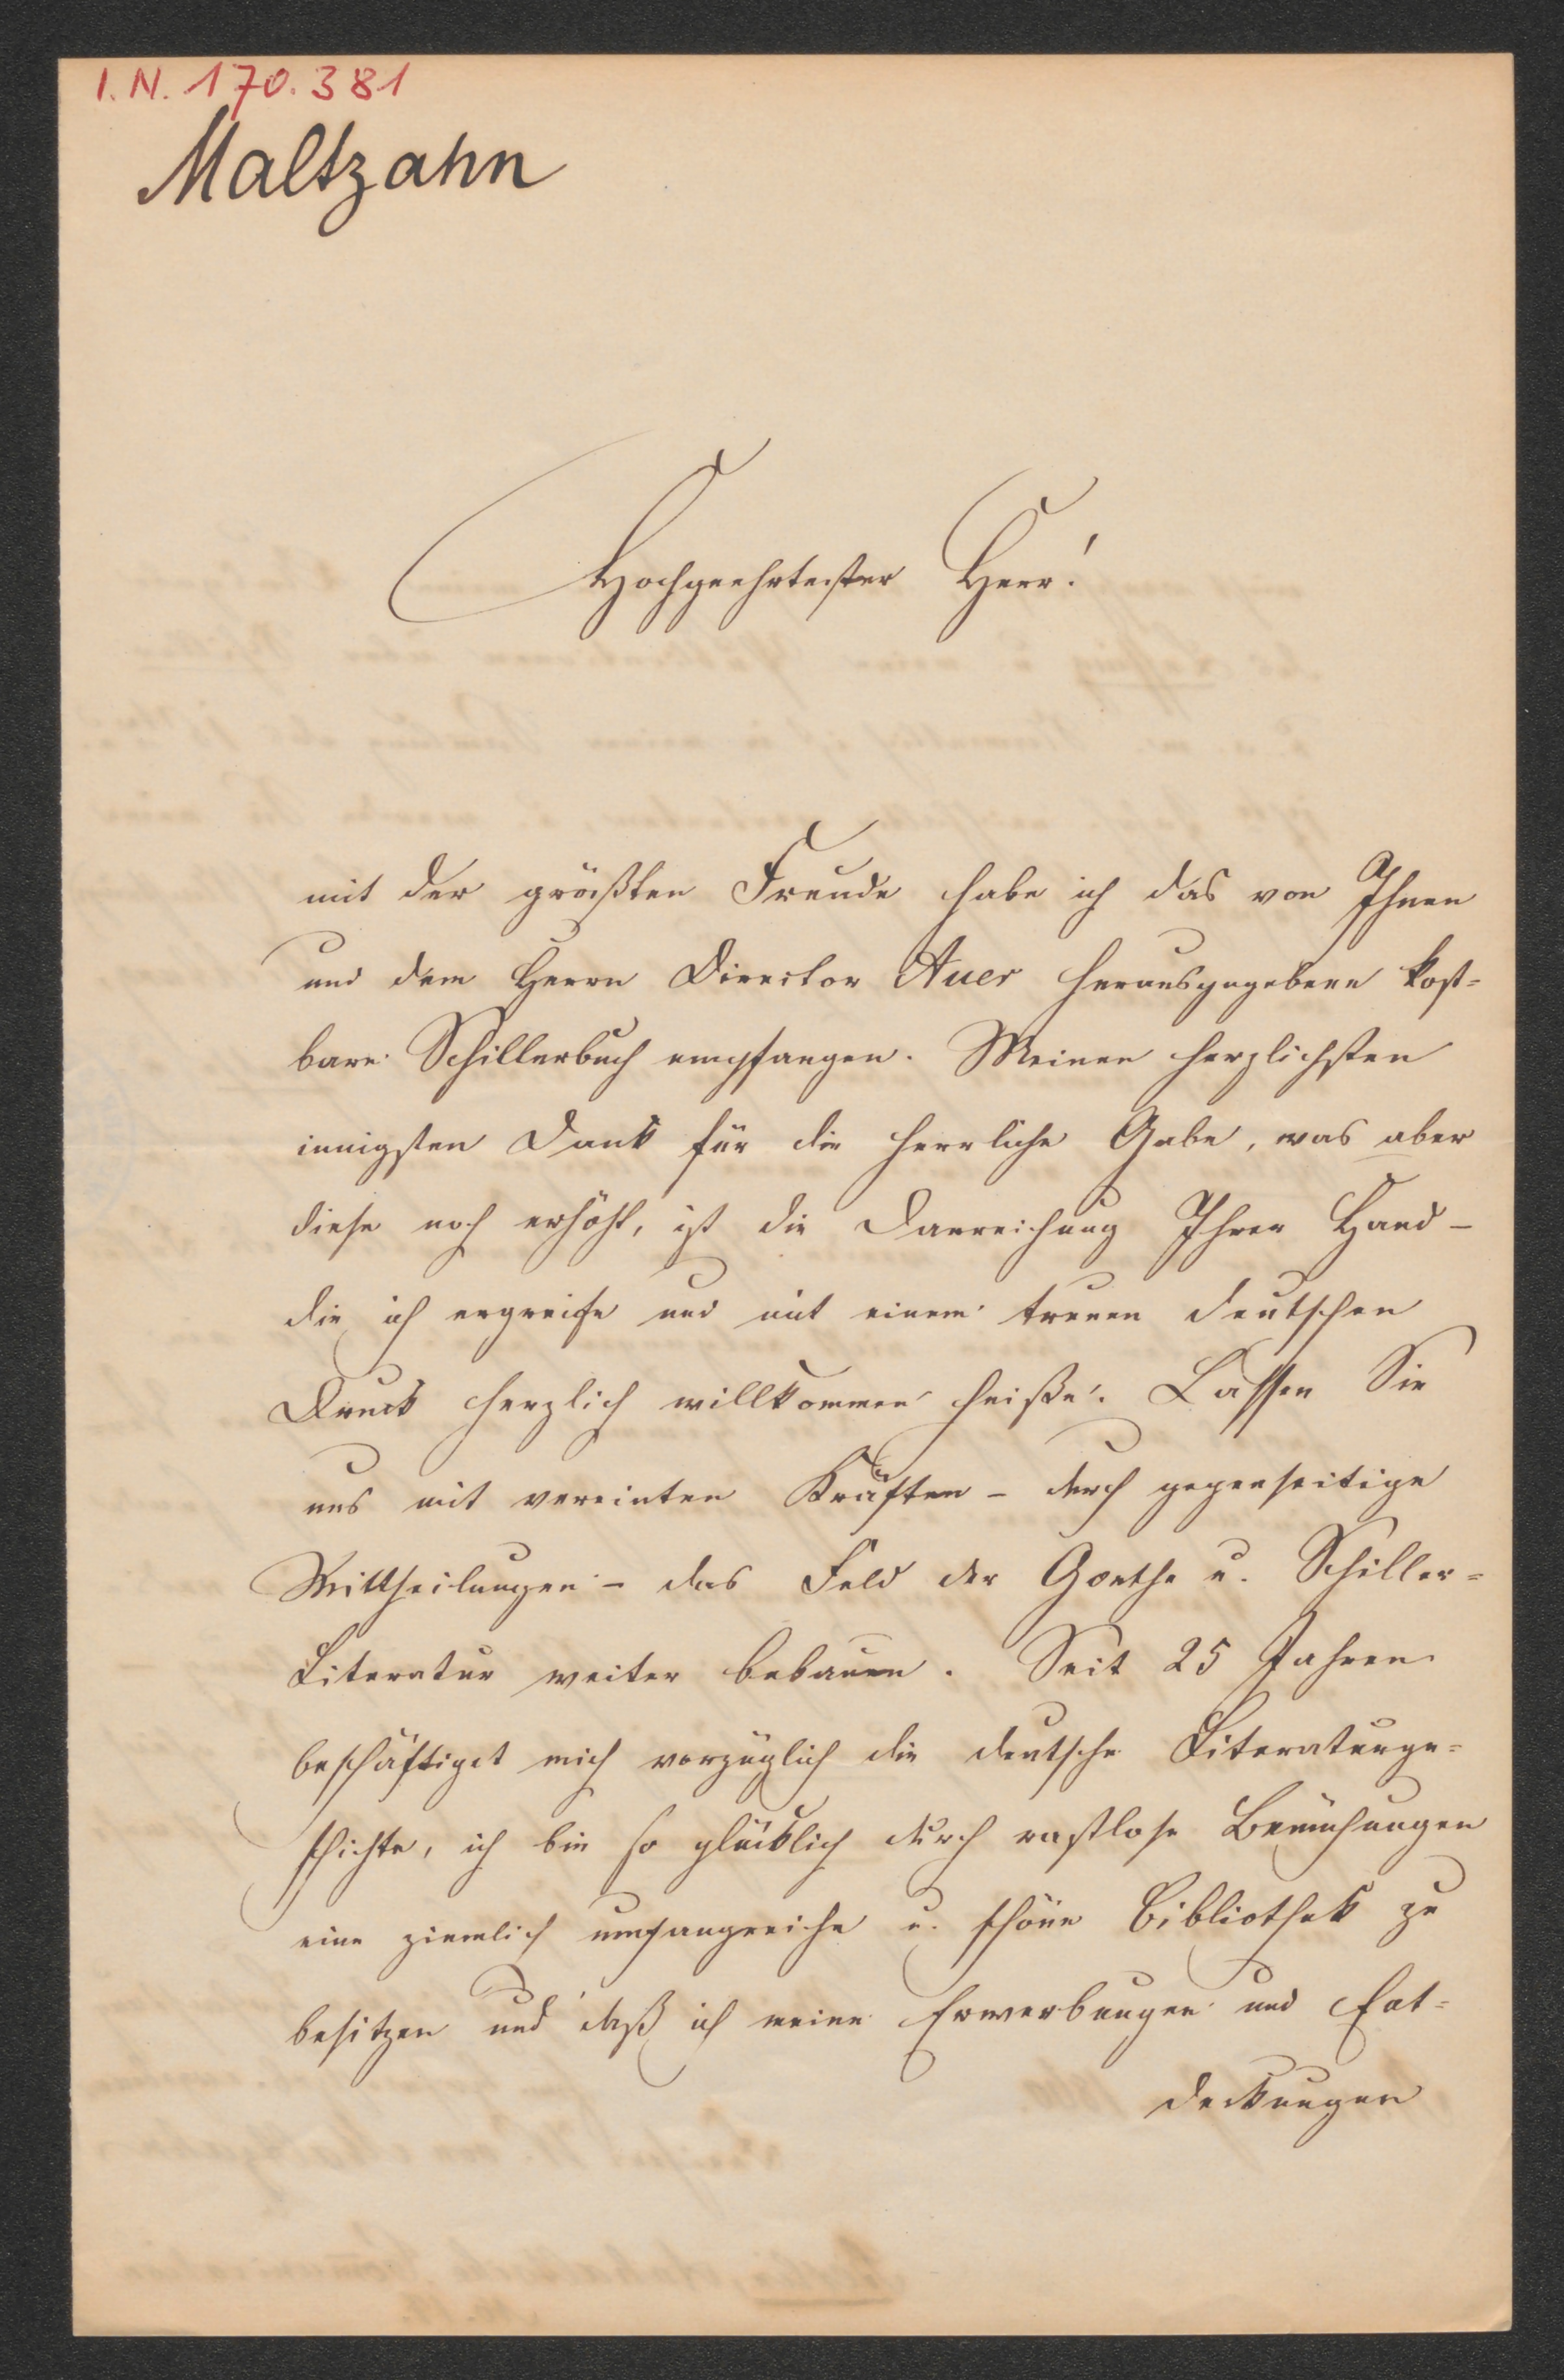 I.N. 170.381
Maltzahn
Hochgeehrtester Herr!
mit der größten Freude habe ich das von Ihnen
und dem Herrn Director Auer herausgegebene kost=
bare Schillerbuch empfangen. Meinen herzlichsten
innigsten Dank für die herrliche Gabe, was aber
diese noch erhöht, ist die Darreichung Ihrer Hand –
die ich ergreife und mit einem treuen deutschen
Druck herzlich willkommen heiße. Lassen Sie
uns mit vereinten Kräften – durch gegenseitige
Mittheilungen – das Feld der Goethe u. Schiller=
Literatur weiter bebauen. Seit 25 Jahren
beschäftiget mich vorzüglich die deutsche Literaturge=
schichte, ich bin so glücklich durch rastlose Bemühungen
eine ziemlich umfangreiche u. schöne Bibliothek zu
besitzen und daß ich meine Erwerbungen und Ent=
deckungen